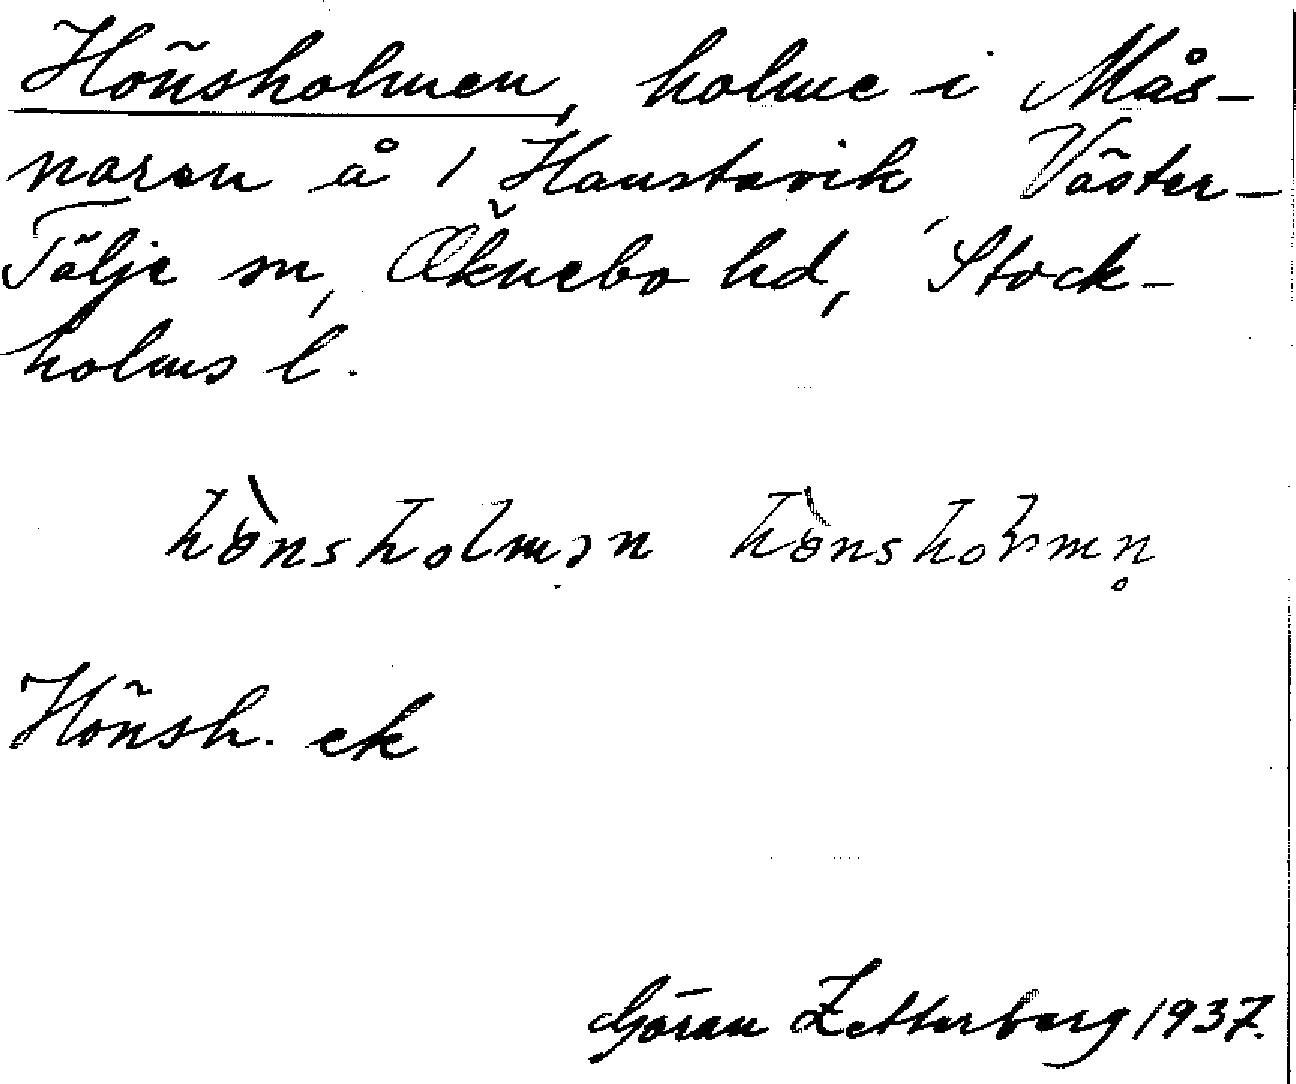 Hönsholmen, holme i Mås-
naren å 1 Hanstavik, Väster-
Tälje sn, Öknebo hd, Stock-
holms l.
hònsholmən hònshoḷmn̥
Hönsh. ek
Göran Zetterberg 1937.